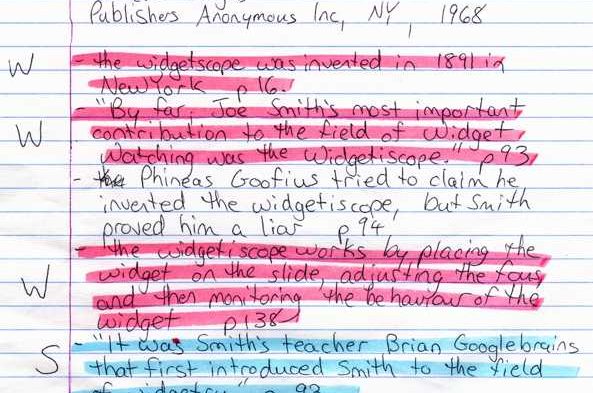 Publishers Anonymous Inc, NY, 1968
W - the widgetscope was invented in 1891 in
New York p 16.
- "By far, Joe Smith's most important
W contribution to the field of widget
watching was the Widgetiscope." p 93
- Phineas Goofius tried to claim he
invented the widgetiscope, but Smith
proved him a liar p 94
- the widgetiscope works by placing the
W widget on the slide, adjusting the
and then monitoring the behaviour of the
widget p 138
S - "It was Smith's teacher Brian Googlebrains
that first introduced Smith to the field